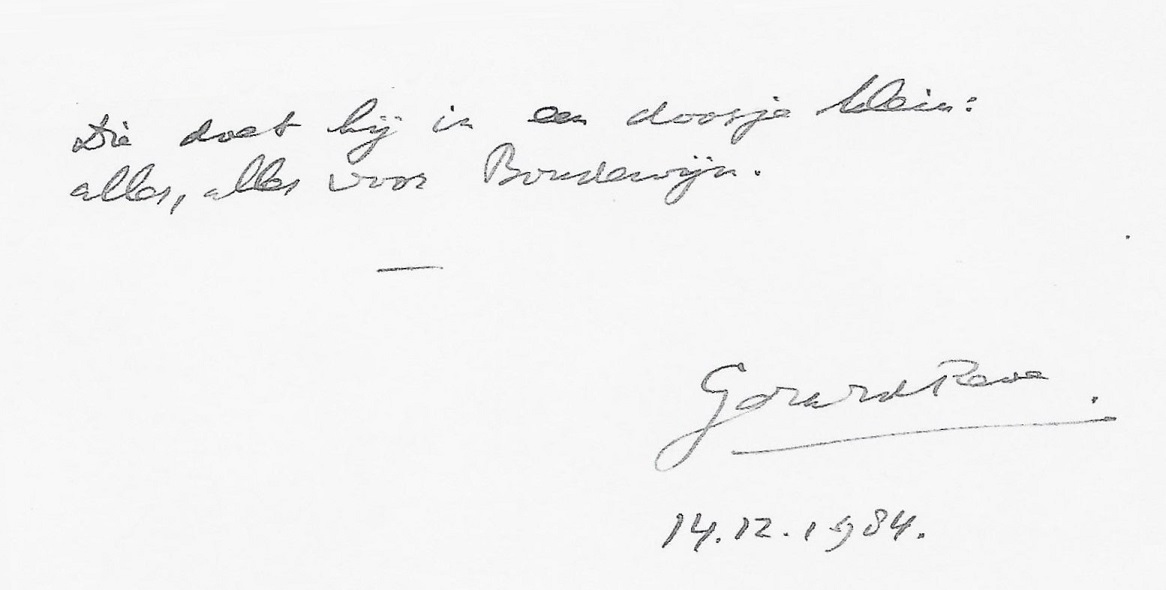 Die doet hij in een doosje klein:
alles, alles voor Boudewijn.
—
Gerard Reve.
14.12.1984.